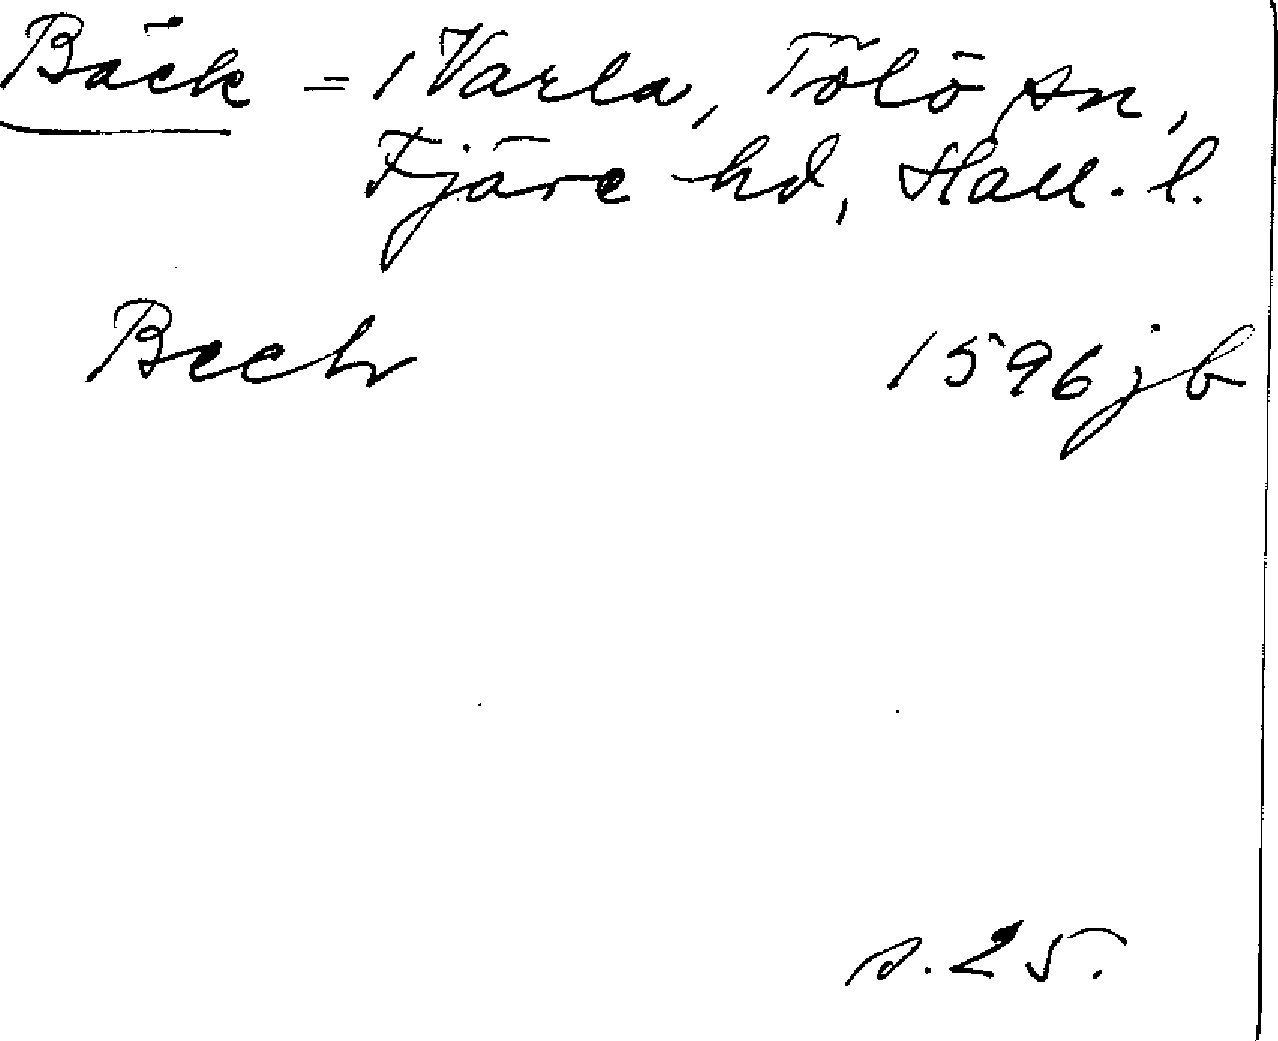 Bäck = 1 Varla, Tölö sn,
Fjäre hd, Hall. l.
Beck 1596 jb
s. 25.